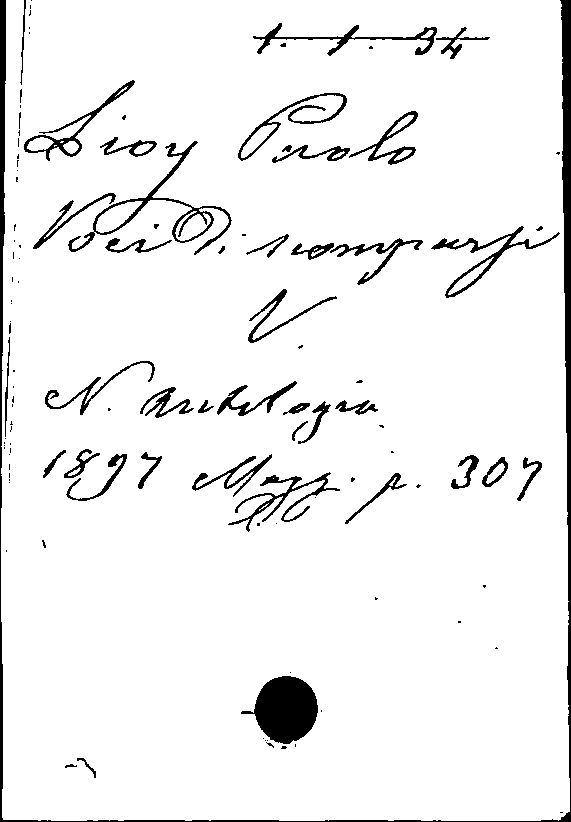 1. 1. 34
Lioy Paolo
Voci di scomparsi
V.
N. Antologia
1897 Magg. p. 307